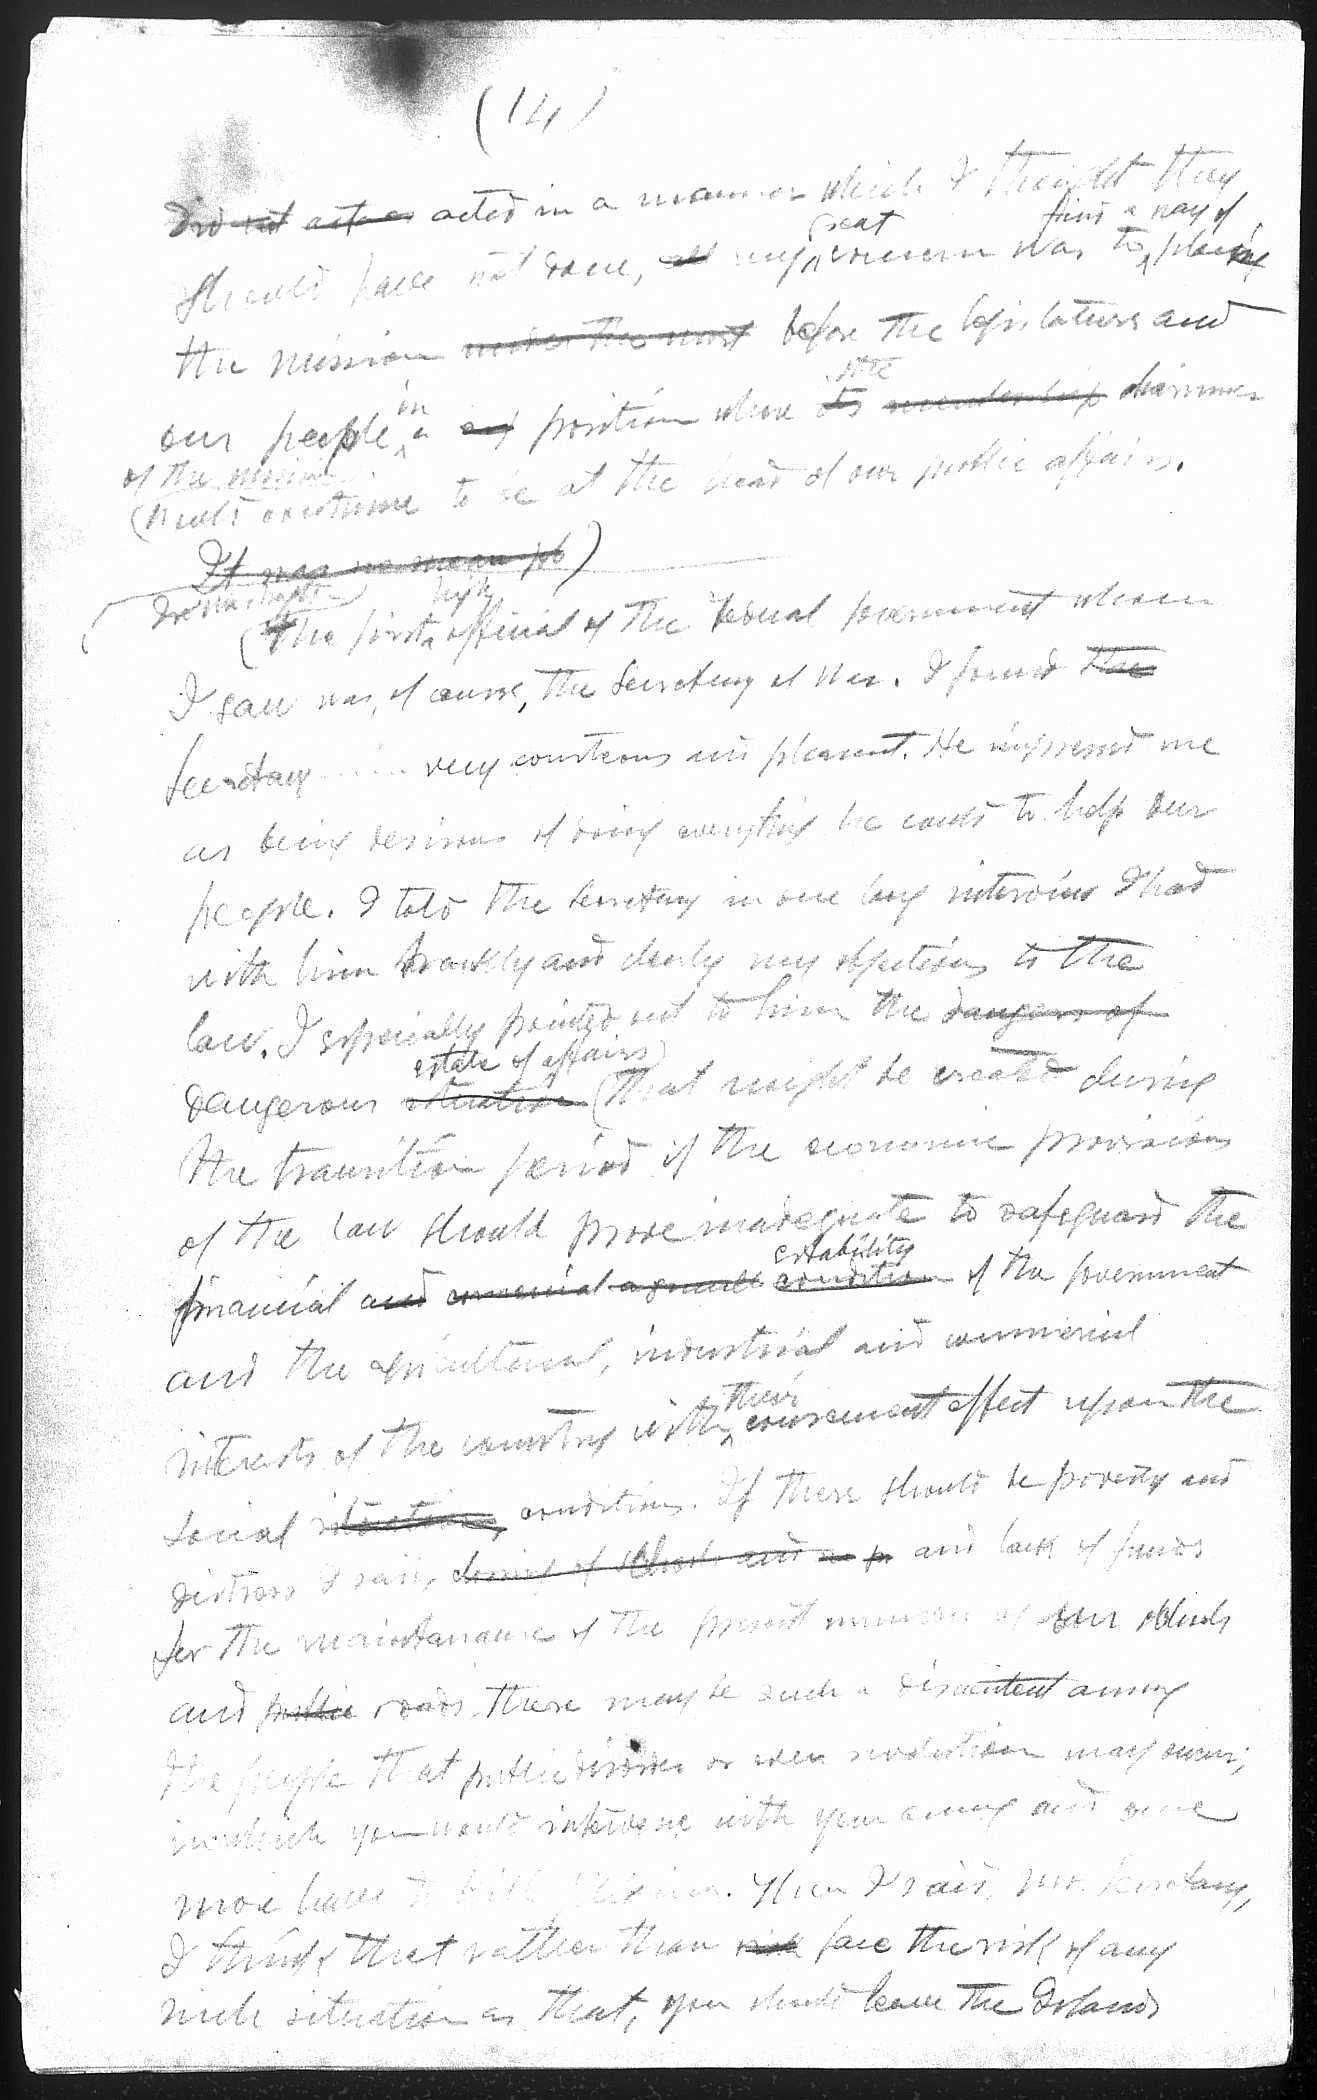 (14)
did not act as acted in a manner which I thought they
great find a way of
should have not done, all my concern was to placing
the mission under the most before the legislature and
in the
our people a any position where its membership chairman
of the mission
(would continue to be at the head of our public affairs.
It was no mean job)
In Washington high
(The first official of the Federal Government whom
I saw was, of course, the Secretary of War. I found the
Secretary very courteous and pleasant. He impressed me
as being desirous of doing everything he could to help our
people. I told the Secretary in one long interview I had
with him frankly and clearly my objections to the
law. I especially pointed out to him the dangers of
estate of affairs
dangerous situation (that might be created during
the transition period if the economic provisions
of the law should prove inadequate to safeguard the
estability
financial and comercial agricult condition of the government
and the agricultural, industrial and commercial
their
interests of the country with consequent effect upon the
social situation, conditions. If there should be poverty and
distress I said, closing of schools and and lack of funds
for the maintanance of the present number of our schools
and public roads, there may be such a discontent among
the people that public disorder or even revolution may occur;
in which you would intervene with your army and once
more have to kill Filipinos. Then I said, Mr. Secretary,
I think that rather than risk face the risk of any
such situation as that, you should leave the Islands